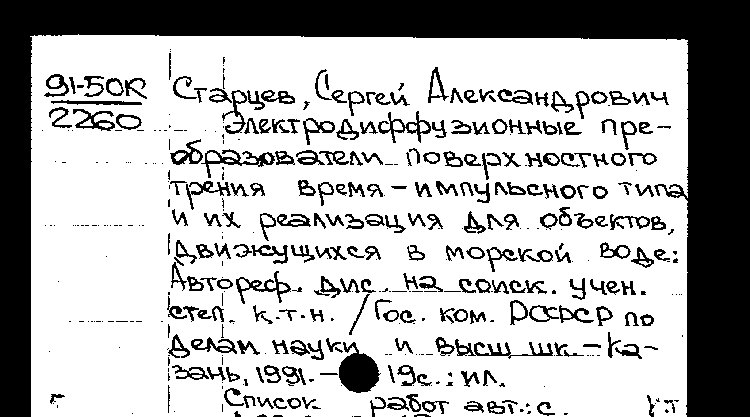 91-50К Старцев, Сергей Александрович
2260 Электродиффузионные пре-
образователи поверхностного
трения время-импульсного типа
и их реализация для объектов,
движущихся в морской воде:
Автореф. дис. на соиск. учен.
степ. к.т.н. / Гос. ком. РСФСР по
делам науки и высш шк. - Ка-
зань, 1991. - 19с.: ил.
Список работ авт.: с.